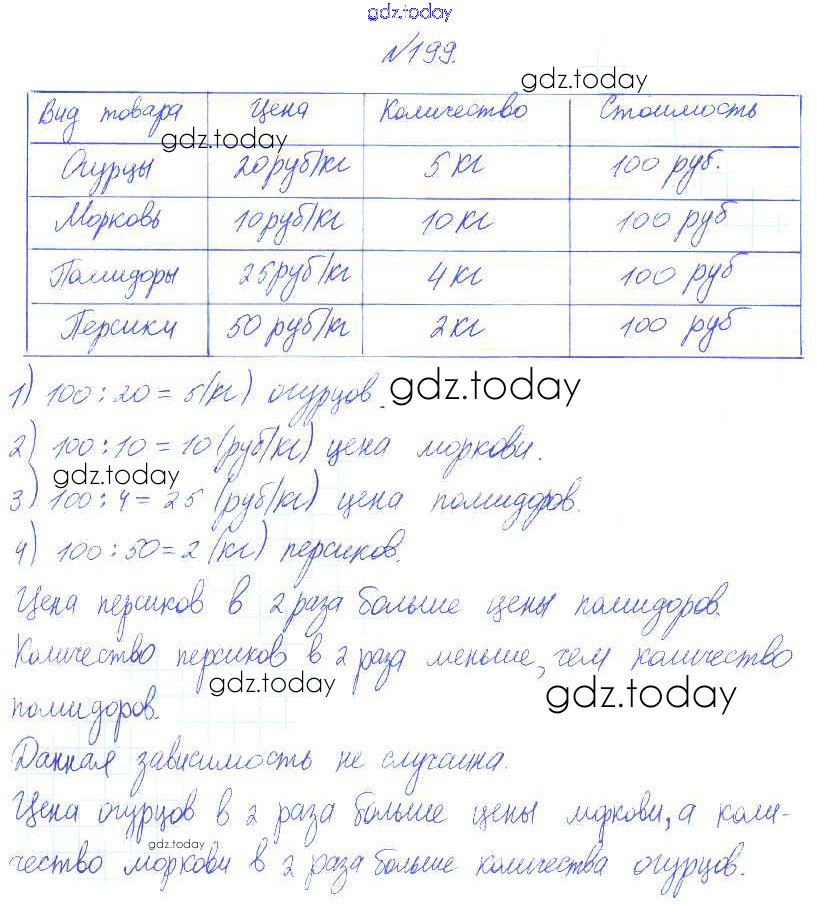 gdz.today
№199.
gdz.today
Вид товара Цена Количество Стоимость
gdz.today
Огурцы 20руб/кг 5 кг 100 руб.
Морковь 10руб/кг 10 кг 100 руб
Помидоры 25руб/кг 4 кг 100 руб
Персики 50 руб/кг 2 кг 100 руб
1) 100 : 20 = 5(кг) огурцов.
gdz.today
2) 100 : 10 = 10 (руб/кг) цена моркови.
gdz.today
3) 100 : 4 = 25 (руб/кг) цена помидоров.
4) 100 : 50 = 2 (кг) персиков.
Цена персиков в 2 раза больше цены помидоров.
Количество персиков в 2 раза меньше, чем количество
gdz.today
gdz.today
помидоров.
Данная зависимость не случайна.
Цена огурцов в 2 раза больше цены моркови, а коли-
gdz.today
чество моркови в 2 раза больше количества огурцов.